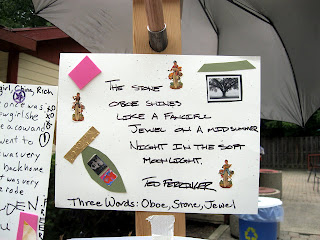 girl, China, Rich
once was
wgirl she
a cowand
went to
was very
back home
was very
rode
The stone
oboe shines
like a fanciful
jewel on a midsummer
night in the soft
moonlight.
Three Words: Oboe, Stone, Jewel